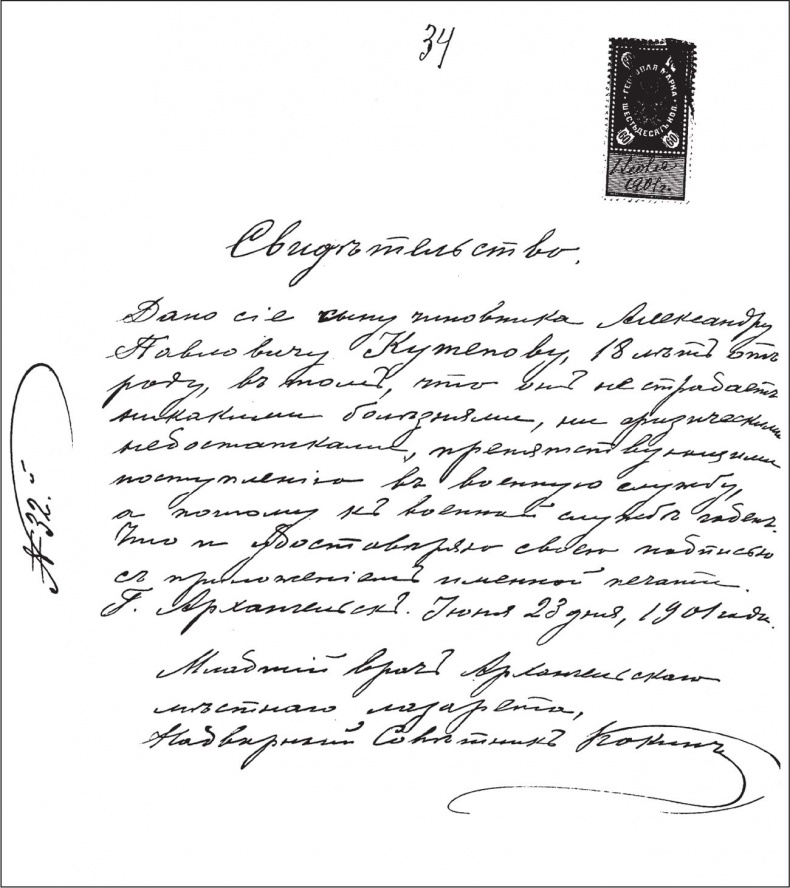 34
ГЕРБОВАЯ МАРКА
ШЕСТЬДЕСЯТЪ КОП.
60 60
1901 г.
Свидѣтельство.
Дано сіе сыну чиновника Александру
Павловичу Кутепову, 18 лѣтъ отъ
роду, въ томъ, что онъ не страдаетъ
никакими болѣзнями, ни физическими
недостатками, препятствующими
поступленію въ военную службу,
а потому къ военной службѣ годенъ.
Что и удостовѣряю своею подписью
съ приложеніемъ именной печати.
Г. Архангельскъ. Іюня 23 дня, 1901 года.
№ 32-й
Младшій врачъ Архангельскаго
мѣстнаго лазарета,
Надворный Совѣтникъ